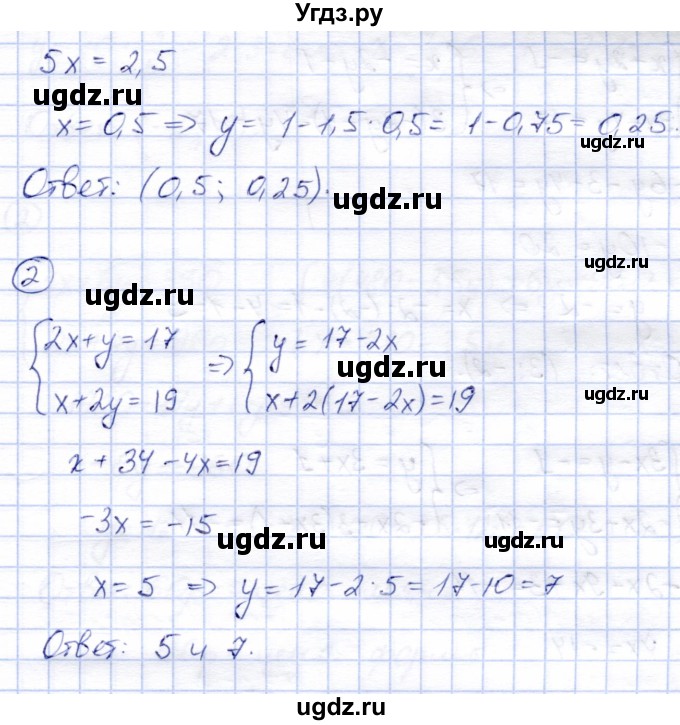 Угдз.ру
5x = 2,5
ugdz.ru
x = 0,5 => y = 1 - 1,5 · 0,5 = 1 - 0,75 = 0,25.
ugdz.ru
Ответ: (0,5; 0,25).
ugdz.ru
2
ugdz.ru
ugdz.ru
{2x + y = 17 => {y = 17 - 2x
ugdz.ru
x + 2y = 19 x + 2(17 - 2x) = 19
ugdz.ru
x + 34 - 4x = 19
-3x = -15
ugdz.ru
ugdz.ru
x = 5 => y = 17 - 2 · 5 = 17 - 10 = 7
Ответ: 5 и 7.
ugdz.ru
ugdz.ru